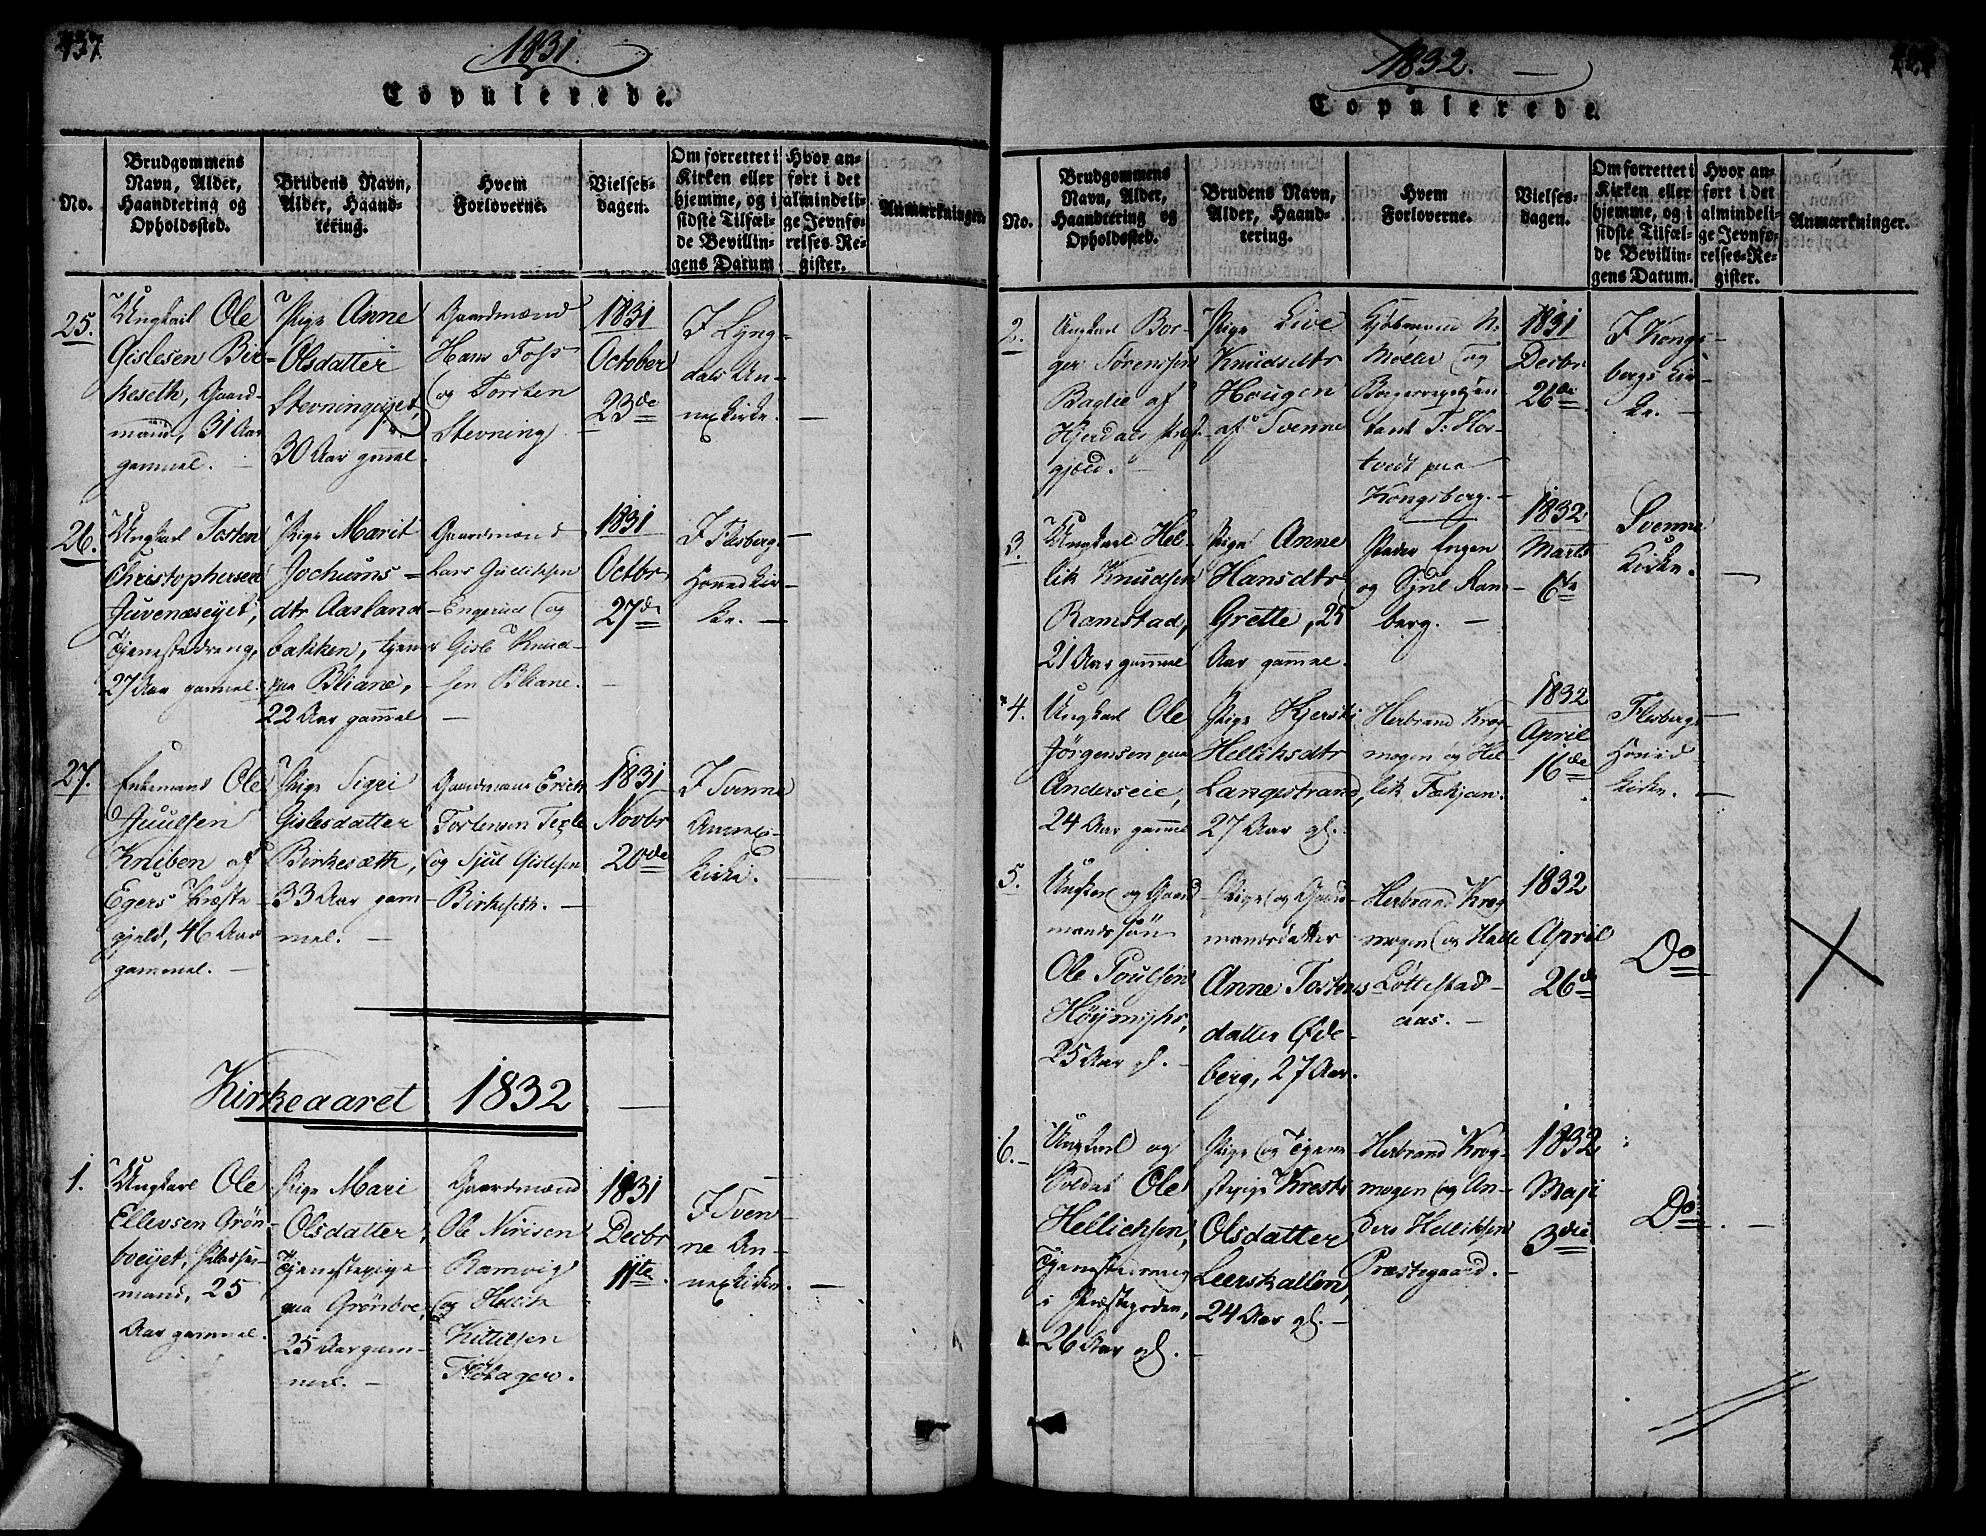 437.
1831.
Copulerede.
No.
Brudgommens
Navn, Alder,
Haandtering og
Opholdssted.
Brudens Navn,
Alder, Haand-
tering.
Hvem
Forloverne.
Vielses-
dagen.
Om forrettet i
Kirken eller
hjemme, og i
sidste Tilfæl-
de Bevillin-
gens Datum
Hvor an-
ført i det
almindeli-
ge Jevnfø-
relses-Re-
gister.
Anmærkninger.
25.
Ungkarl Ole
Gislesen Bir-
keseth, Gaard-
mand, 31 Aar
gammel.
Pige Anne
Olsdatter
Stevningejet,
30 Aar gamel.
Gaardmænd
Hans Foss
og Torsten
Stevning
1831
October
23de
I Lyng-
dals An-
nexkirke.
26.
Ungkarl Tosten
Christophersen
Juvenæseyet,
Tjenestedreng,
27 Aar gammel.
Pige Marit
Jochums-
dtr Aasland-
bakken, tjener
paa Bliane,
22 Aar gammel
Gaardmænd
Lars Gulliksen
Engerud og
Gisle Knud-
sen Bliane.
1831
Octbr
27de
I Flesberg
Hovedkir-
ke.
27.
Enkemand Ole
Juulsen
Kniben af
Egers Præste-
gjeld, 46 Aar
gammel.
Pige Sigri
Gislesdatter
Birkesæth,
33 Aar gam-
mel.
Gaardmænd Erich
Tostensen
og Sjul Gislesen
Birkeseth.
1831
Novbr
20de
I Svenne
Annex-
kirke.
Kirkeaaret 1832
1.
Ungkarl Ole
Ellevsen Grøn-
hveyet, Pladse-
mand, 25
Aar gammel.
Pige Mari
Olsdatter,
Tjenestepige
paa Grønhve,
25 Aar gam-
mel.
Gaardmænd
Ole Nirisen
Ramvig
og Hellik
Kittilsen
Flåtager.
1831
Decbr
11te
I Sven-
ne An-
nexkirke.
1832.
Copulerede.
No.
Brudgommens
Navn, Alder,
Haandtering og
Opholdssted.
Brudens Navn,
Alder, Haand-
tering.
Hvem
Forloverne.
Vielses-
dagen.
Om forrettet i
Kirken eller
hjemme, og i
sidste Tilfæl-
de Bevillin-
gens Datum.
Hvor an-
ført i det
almindeli-
ge Jevnfø-
relses-Re-
gister.
Anmærkninger.
2.
Ungkarl Bor-
ger Sørensen
Baglie af
Hjerdals Præst-
gjeld.
Pige Live
Knudsdtr
Hougen
af Svenne
Kjøbmand N.
Møller og
Borgerrepresen-
tant T. Kor-
tvedt paa
Kongsberg.
1831
Decbr
26de
I Kongs-
bergs Kir-
ke.
3.
Ungkarl Hel-
lik Knudsen
Ramstad,
21 Aar gammel
Pige Anne
Hansdtr
Grette, 25
Aar gammel.
Peder Engen
og Sjul Ram-
berg.
1832
Marts
6te
Svenne
Kirke.
4.
Ungkarl Ole
Jørgensen paa
Anderseie,
24 Aar gammel
Pige Kjersti
Helliksdtr
Langestrand,
27 Aar gl.
Herbrand Krog-
mogen og Hel-
lik Tækjan.
1832
April
16de
Flesbergs
Hoved
Kirke.
5.
Ungkarl og Gaard
mandssøn
Ole Poulsen
Høymyhr,
25 Aar gl.
Pige og Gaard-
mandsdatter
Anne Tostens
datter Øde-
berg, 27 Aar.
Herbrand Krog-
mogen og Halle
Løttestad-
aas.
1832
April
26de
Do
6.
Ungkarl og
Soldat Ole
Hellichsen,
Tjenestedreng
i Præstegaarden,
26 Aar gl.
Pige og Tjene-
stepige Kresti
Olsdatter
Leerskallen,
24 Aar gl.
Herbrand Krog-
mogen og An-
ders Helliksen
Præstegaard.
1832
Maji
3die
Do